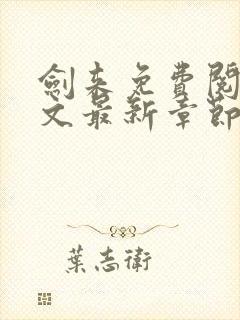 劍來免費閱
文最新章節
葉志衛